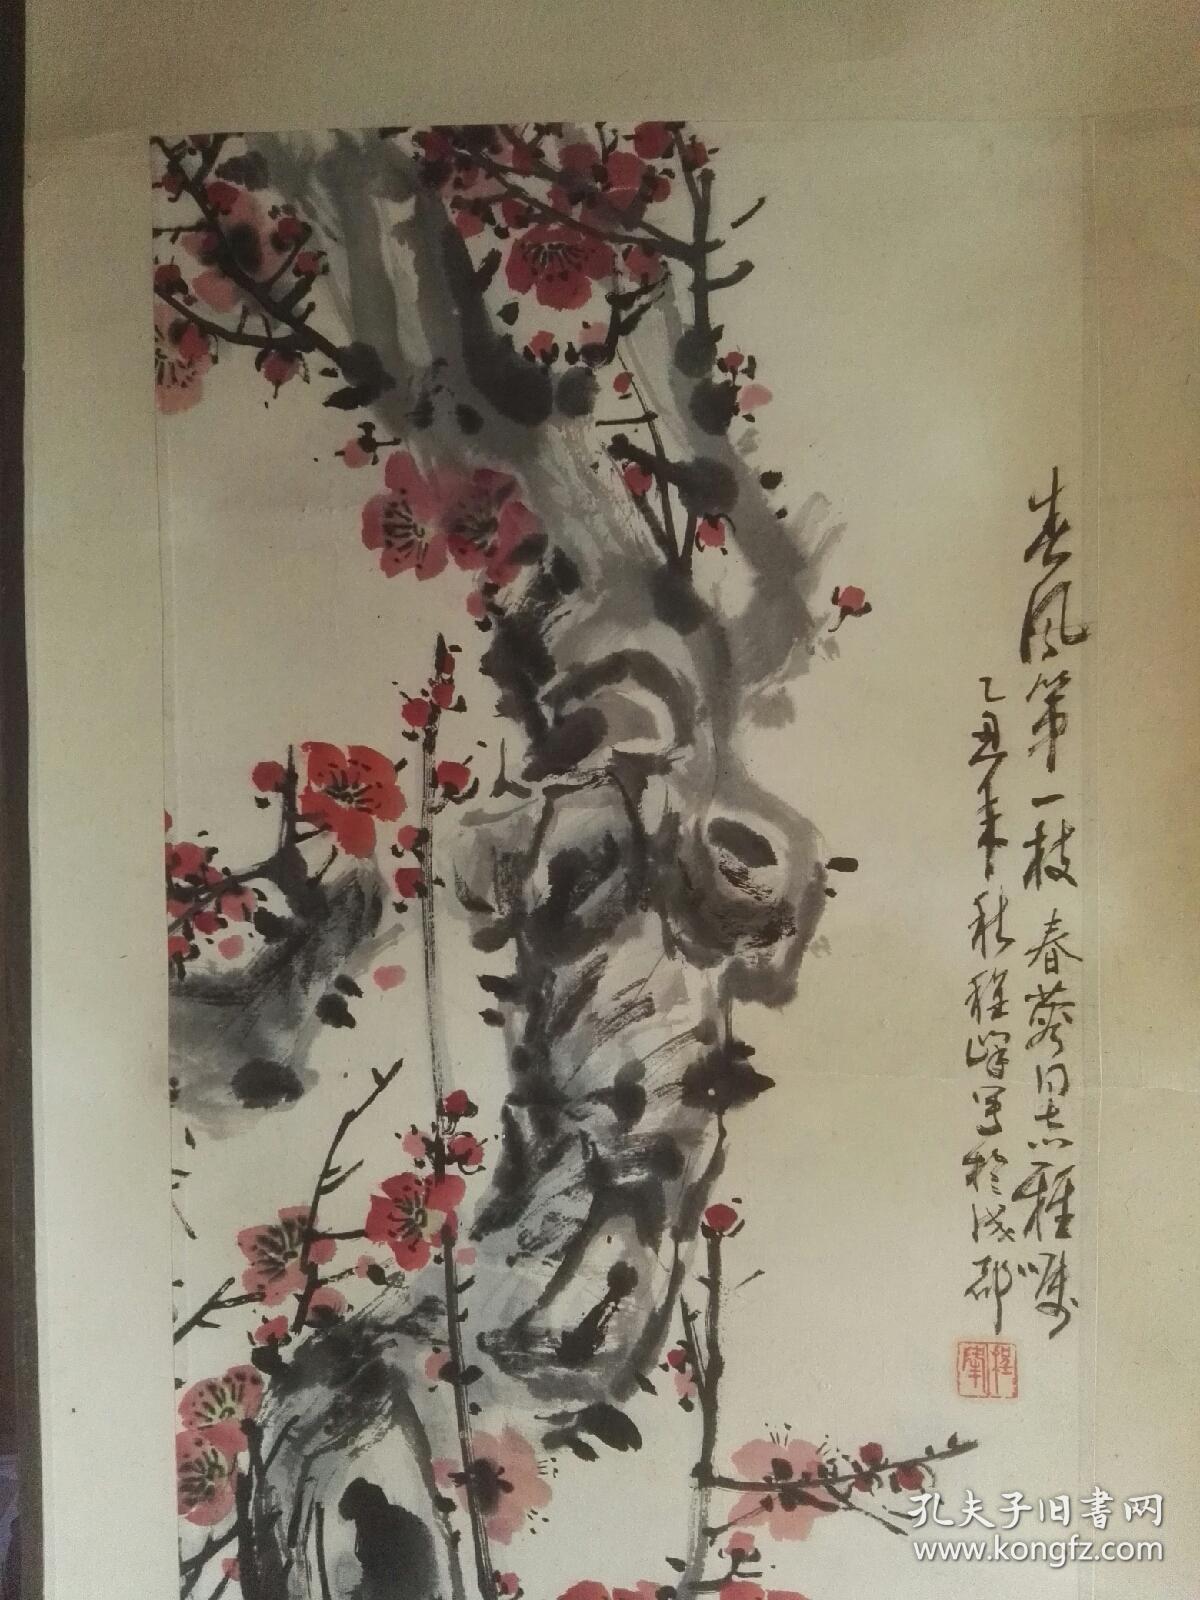 春风第一枝 春蓉同志雅嘱
乙丑年秋程峰写於成都
程峰
孔夫子旧书网
www.kongfz.com